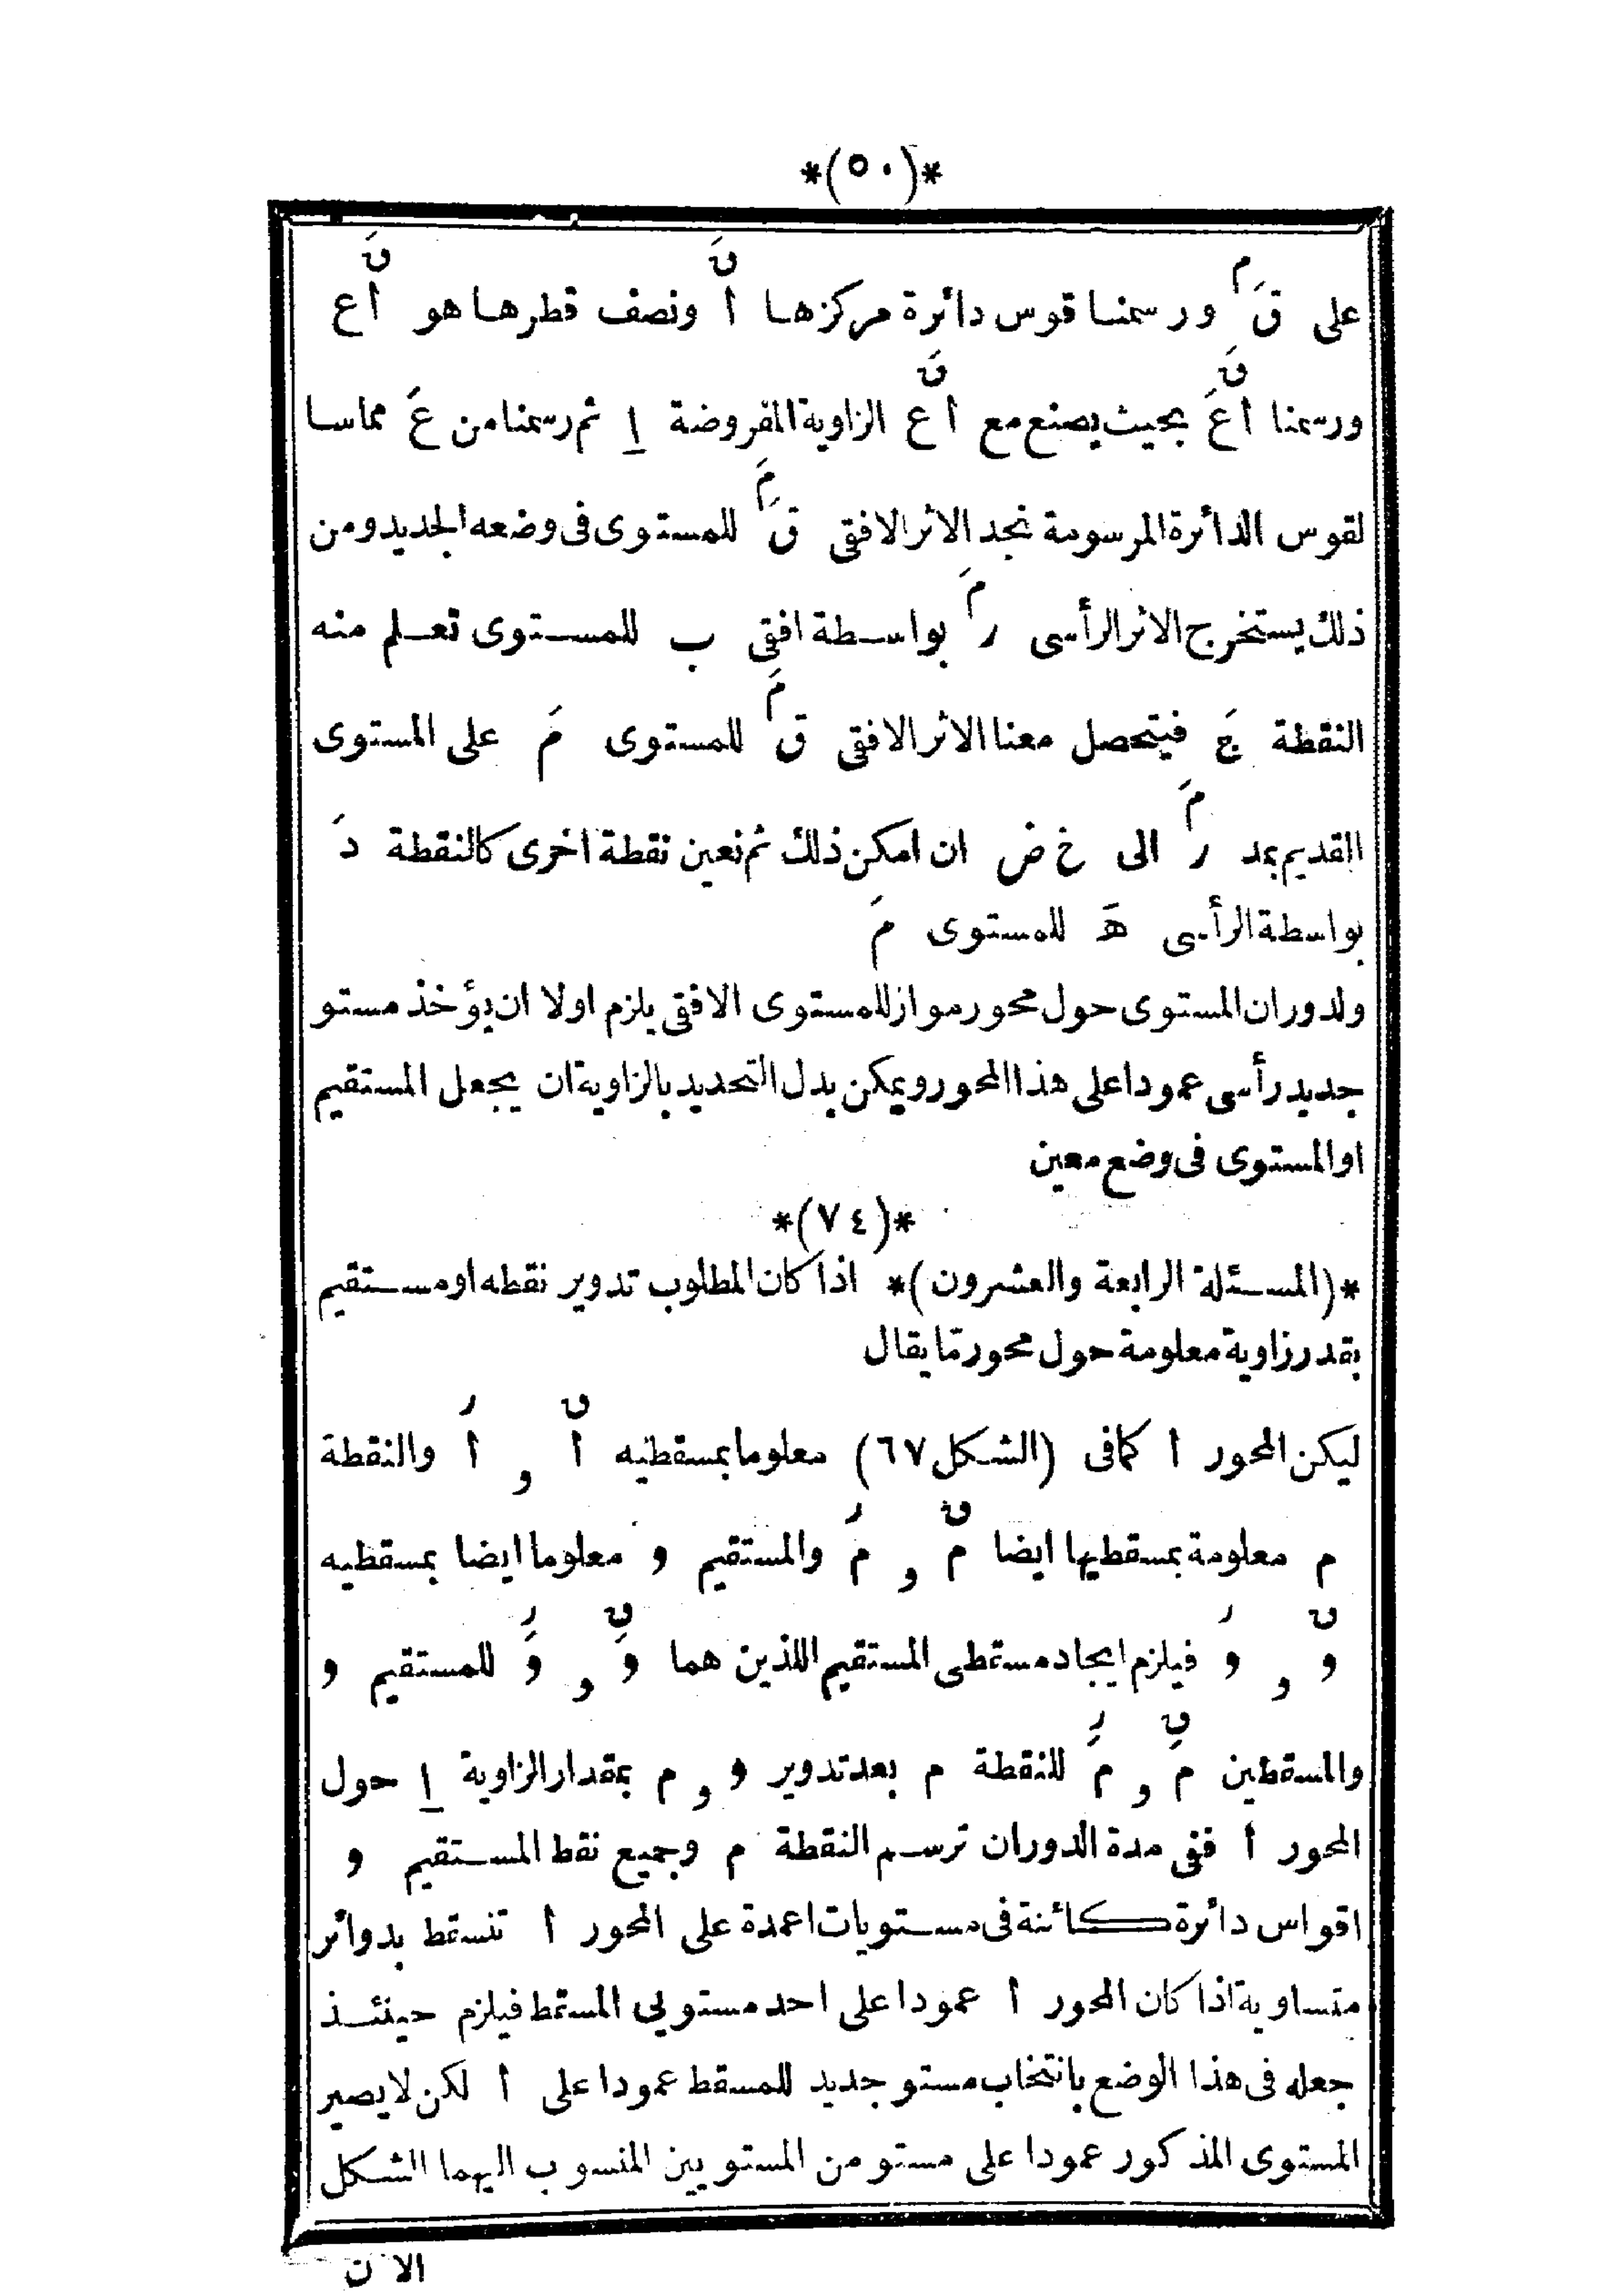 *(٥٠)*
على قَ^م ورسمنا قوس دائرة مركزها أ^قَ ونصف قطرها هو أ^قَ ع
ورسمنا أ^قَ عَ بحيث يصنع مع أ^قَ ع الزاوية المفروضة ا ثم رسمنا من عَ مماسا
لقوس الدائرة المرسومة نجد الاثر الافقى ق^مَ للمستوى فى وضعه الجديد ومن
ذلك يستخرج الاثر الرأسى ر^مَ بواسطة افقى ب للمستوى تعلم منه
النقطة جَ فيتحصل معنا الاثر الافقى ق^مَ للمستوى مَ على المستوى
القديم بمد ر^مَ الى خ ض ان امكن ذلك ثم نعين نقطة اخرى كالنقطة دَ
بواسطة الرأسى هَ للمستوى مَ
ولدوران المستوى حول محور مواز للمستوى الافقى يلزم اولا ان يؤخذ مستو
جديد رأسى عمودا على هذا المحور ويمكن بدل التحديد بالزاوية ان يجعل المستقيم
او المستوى فى وضع معين
*(٧٤)*
*(المسئلة الرابعة والعشرون)* اذا كان المطلوب تدوير نقطه او مستقيم
بقدر زاوية معلومة حول محور ما يقال
ليكن المحور أ كما فى (الشكل ٦٧) معلوما بمسقطيه أ^ق و أ^ر والنقطة
م معلومة بمسقطيها ايضا م^ق و م^ر والمستقيم و معلوما ايضا بمسقطيه
و^ق و و^ر فيلزم ايجاد مسقطى المستقيم اللذين هما وَ^ق و وَ^ر للمستقيم و
والمسقطين مَ^ق و مَ^ر للنقطة م بعد تدوير و و م بمقدار الزاوية ا حول
المحور أ ففى مدة الدوران ترسم النقطة م وجميع نقط المستقيم و
اقواس دائرة كائنة فى مستويات اعمدة على المحور أ تنسقط بدوائر
متساوية اذا كان المحور أ عمودا على احد مستويى المسقط فيلزم حينئذ
جعله فى هذا الوضع بانتخاب مستو جديد للمسقط عمودا على أ لكن لا يصير
المستوى المذكور عمودا على مستو من المستويين المنسوب اليهما الشكل
الا ن